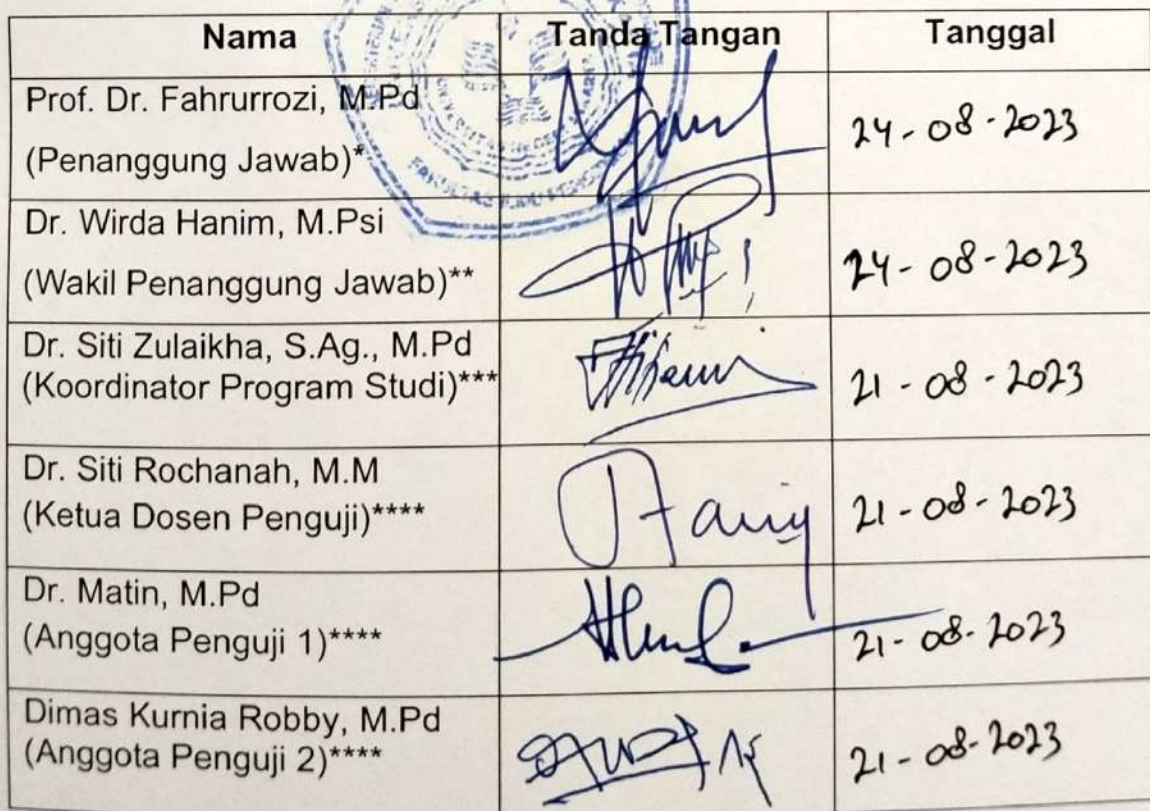 Nama Tanda Tangan Tanggal
Prof. Dr. Fahrurrozi, M.Pd
(Penanggung Jawab)* 24-08-2023
Dr. Wirda Hanim, M.Psi
(Wakil Penanggung Jawab)** 24-08-2023
Dr. Siti Zulaikha, S.Ag., M.Pd
(Koordinator Program Studi)*** 21-08-2023
Dr. Siti Rochanah, M.M
(Ketua Dosen Penguji)**** 21-08-2023
Dr. Matin, M.Pd
(Anggota Penguji 1)**** 21-08-2023
Dimas Kurnia Robby, M.Pd
(Anggota Penguji 2)**** 21-08-2023